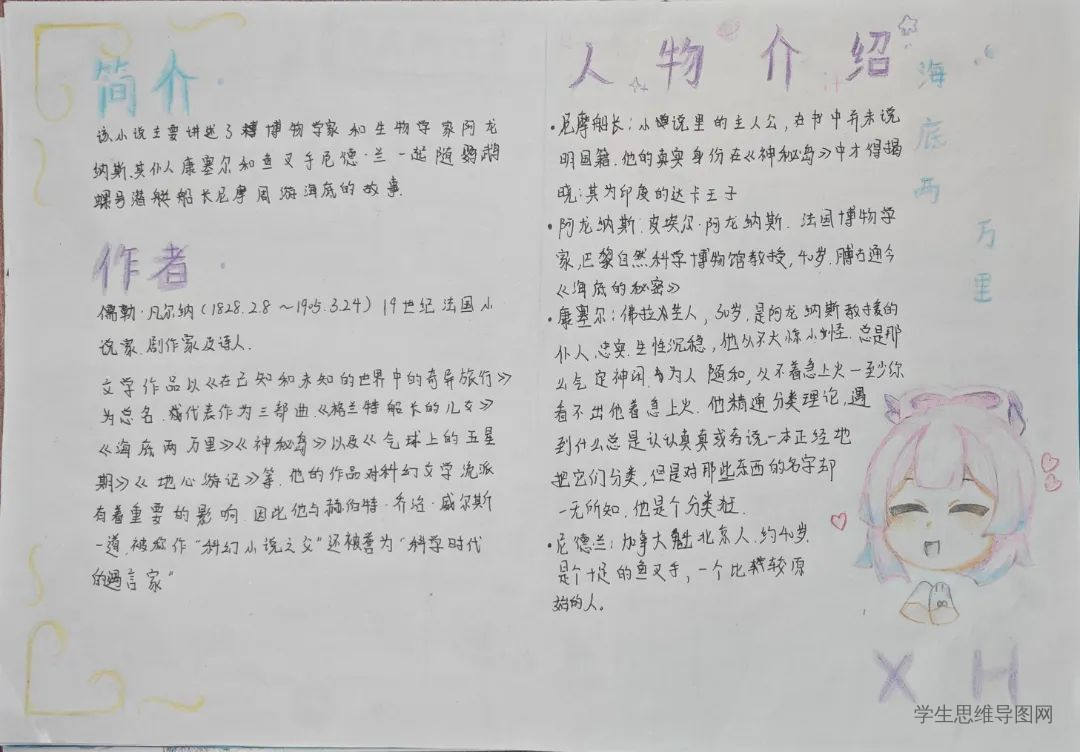 简介
该小说主要讲述了博物学家和生物学家阿龙
纳斯.其仆人康塞尔和鱼叉手尼德·兰一起随鹦鹉
螺号潜艇船长尼摩周游海底的故事.
作者
儒勒·凡尔纳（1828.2.8～1905.3.24）19世纪法国小
说家.剧作家及诗人.
文学作品以《在已知和未知的世界中的奇异旅行》
为总名.代表作为三部曲《格兰特船长的儿女》
《海底两万里》《神秘岛》以及《气球上的五星
期》《地心游记》等.他的作品对科幻文学流派
有着重要的影响.因此他与赫伯特·乔治·威尔斯
一道,被称作“科幻小说之父”还被誉为“科学时代
的预言家”
人物介绍
·尼摩船长:小说里的主人公,在书中并未说
明国籍.他的真实身份在《神秘岛》中才得揭
晓:其为印度的达卡王子
·阿龙纳斯:皮埃尔·阿龙纳斯.法国博物学
家,巴黎自然科学博物馆教授,40岁.博古通今
《海底的秘密》
·康塞尔:佛拉芒人,30岁,是阿龙纳斯教授的
仆人.忠实.生性沉稳,他从不大惊小怪.总是那
么气定神闲.为人随和,从不着急上火—至少你
看不出他着急上火.他精通分类理论,遇
到什么总是认认真真或者说一本正经地
把它们分类,但是对那些东西的名字却
一无所知.他是个分类狂.
·尼德兰:加拿大魁北克人.约40岁
是个十足的鱼叉手,一个比较原
始的人。
海
底
两
万
里
X H
学生思维导图网